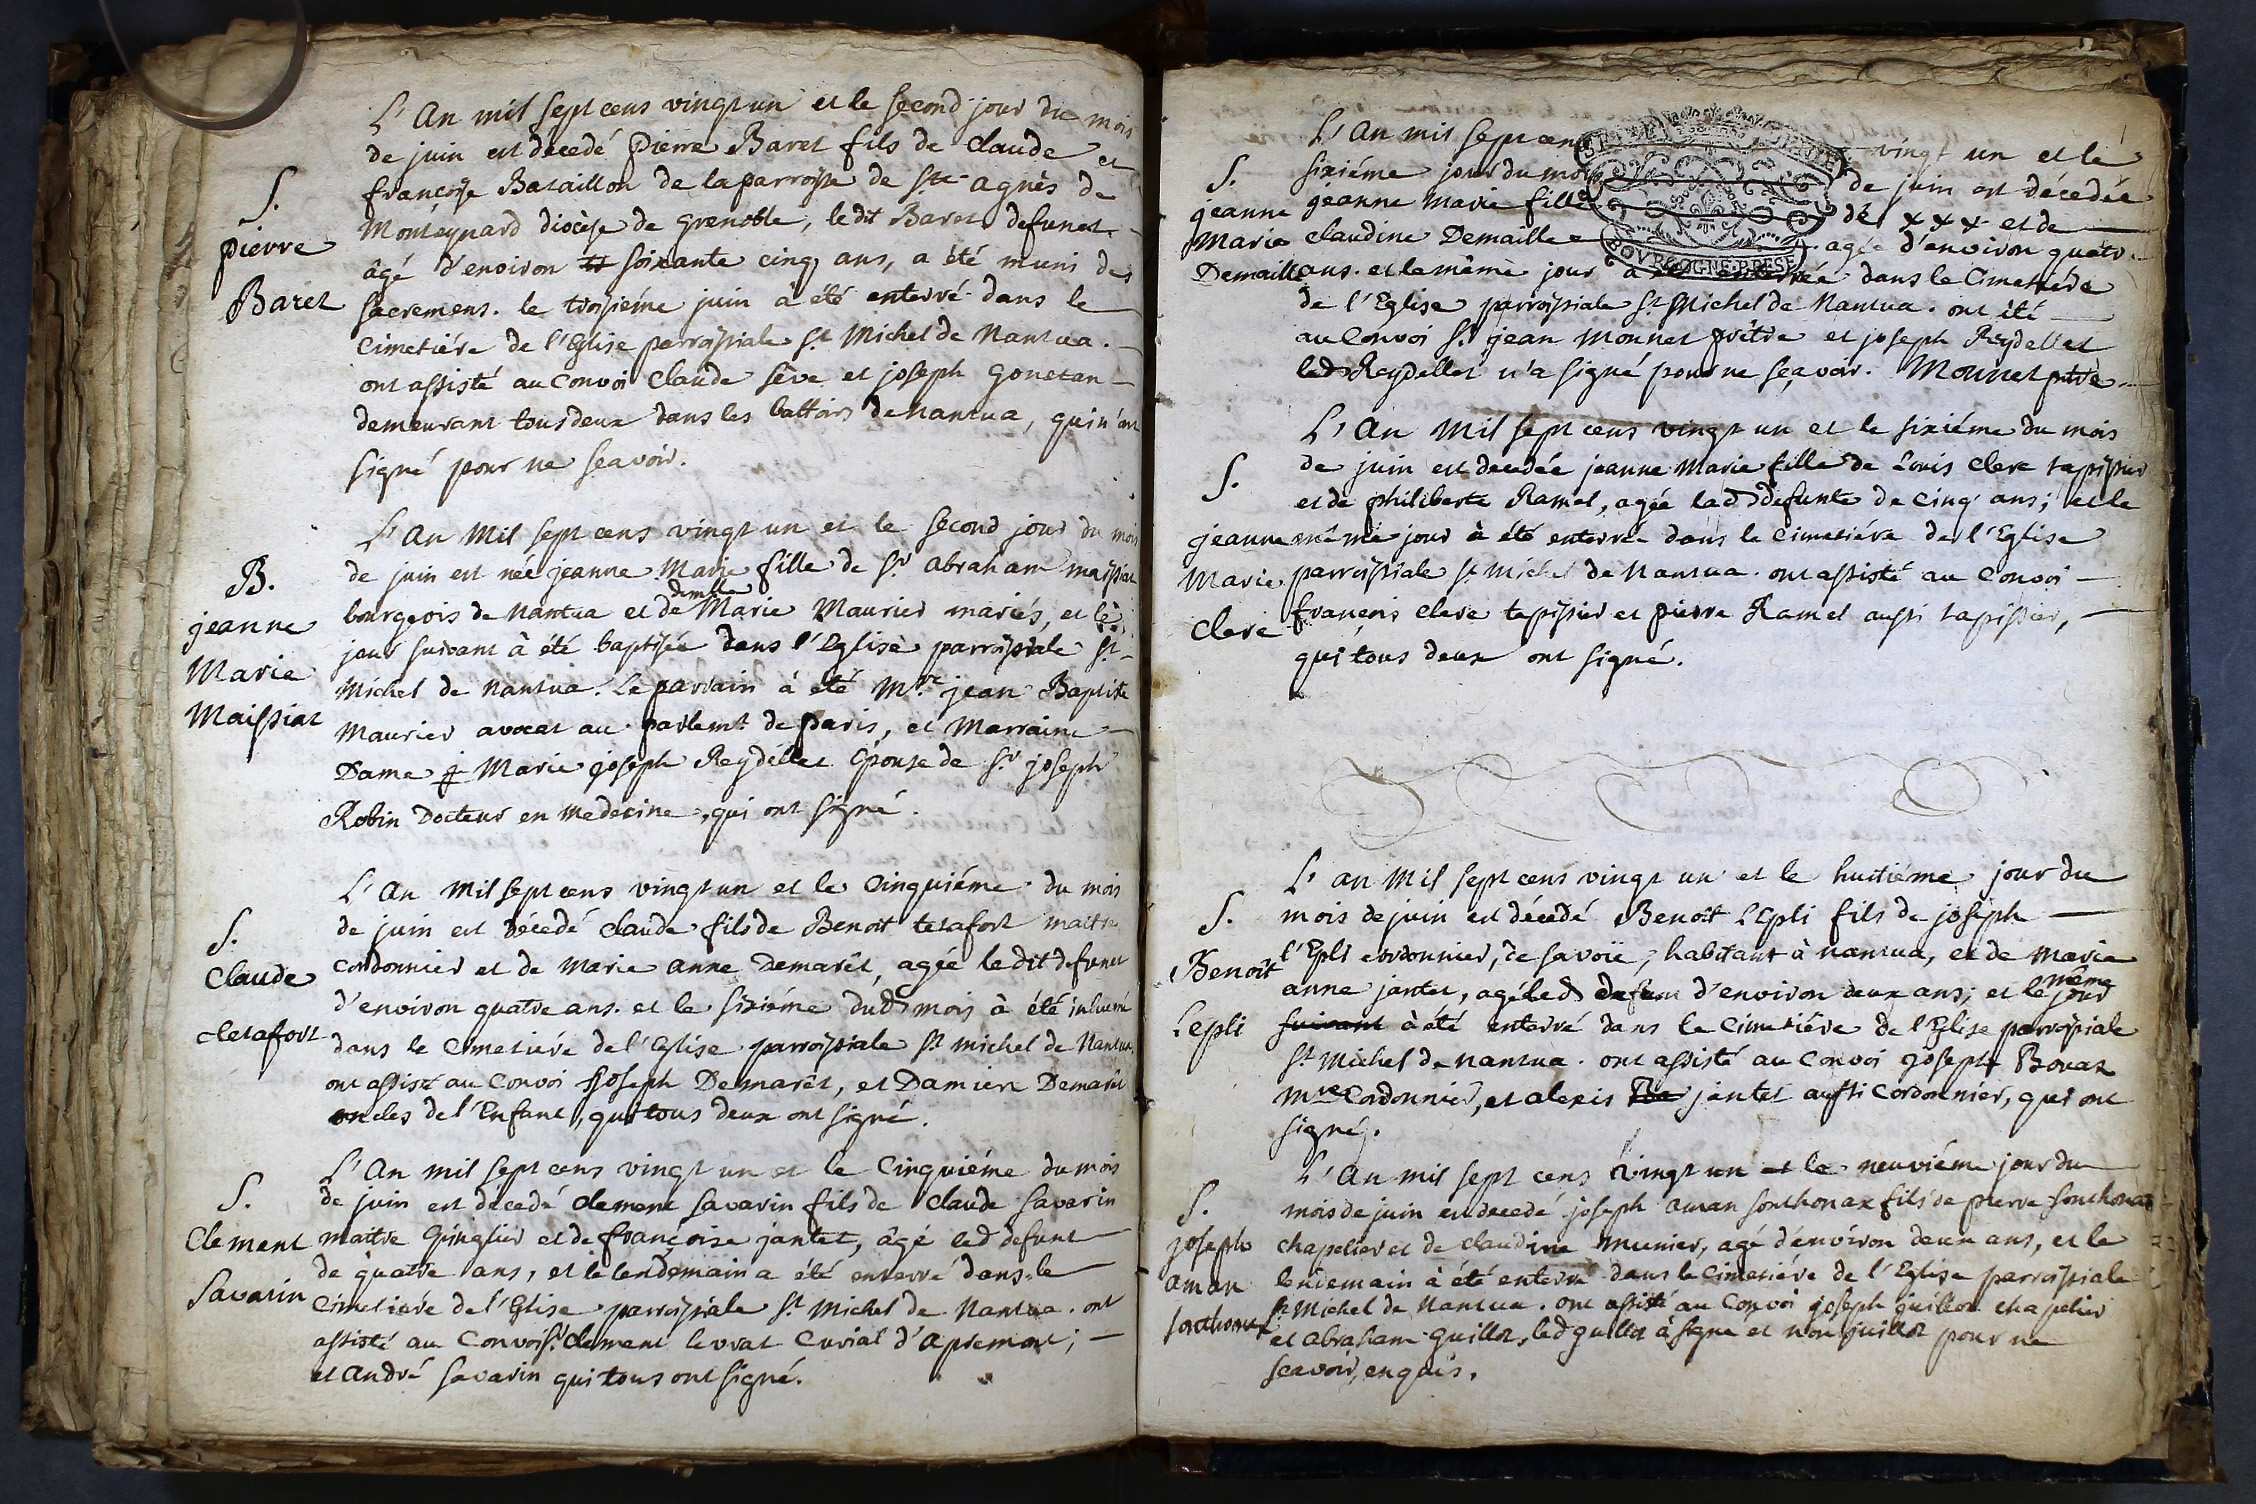 L'An mil sept cens vingt un et le second jour du mois
de juin est décedé pierre Baret fils de claude et
francoise Bataillon de la parroisse de ste agnès de
Monteynard diocèse de grenoble, le dit Baret defunct
S.
pierre
Baret
âgé d'environ soixante cinq ans, a été muni des
sacremens. le troisieme juin à été enterré dans le
cimetiére de l'Eglise parroissiale st Michel de Nantua.
ont assisté au convoi claude sève et joseph gonetan
demeurant tous deux dans les battoirs de Nantua, qui n'ont
signé pour ne scavoir.
L'An Mil sept cens vingt un et le second jour du mois
de juin est née jeanne Marie fille de Sr abraham maissiat
B.
jeanne
Marie
Maissiat
bourgeois de Nantua et de demlle Marie Maurier mariés, et le
jour suivant à été baptisée dans l'Eglise parroissiale St
Michel de Nantua. Le parrain à été Mre jean Baptiste
Maurier avocat au parlemt de paris, et Marraine
Dame Marie joseph Reydellet Epouse de Sr joseph
Robin Docteur en Medecine, qui ont signé.
L'An mil sept cens vingt un et le cinquiéme du mois
de juin est décedé claude fils de Benoit tetafort maitre
S.
Claude
tetafort
cordonnier et de Marie anne Demarêt, agée le dit defunct
d'environ quatre ans. et le sixiéme dud mois à été inhumé
dans le cimetiére de l'Eglise parroissiale st michel de Nantua
ont assisté au convoi joseph Demarêt, et Damien Demarêt
oncles de l'Enfant, qui tous deux ont signé.
L'An mil sept cens vingt un et le Cinquiéme du mois
de juin est decedé clement savarin fils de claude savarin
S.
Clement
Savarin
maitre Epinglier et de françoise jantet, âgé led defunt
de quatre ans, et le lendemain a été enterré dans le
cimetiére de l'Eglise parroissiale St Michel de Nantua. ont
assisté au Convoi Sr clement levrat curial d'apremont;
et andré savarin qui tous ont signé.
L'An mil sept cens vingt un et le
sixiéme jour du mois de juin est décedée
S.
jeanne
Marie
Demaille
jeanne Marie fille de xxx et de
claudine Demaille agée d'environ quatre
ans. et le même jour à été enterrée dans le Cimetiére
de l'Eglise parroissiale St Michel de Nantua. ont été
au Convoi Sr jean Monnet prêtre et joseph Reydellet
led Reydellet n'a signé pour ne sçavoir. Monnet ptre
L'An Mil sept cens vingt un et le sixiéme du mois
de juin est decedée jeanne Marie fille de Louis clerc tapissier
S.
jeanne
Marie
clerc
et de philiberte Ramel, agée lad defunte de cinq ans; et le
même jour à été enterrée dans le cimetiére de l'Eglise
parroissiale St Michel de Nantua. ont assisté au Convoi
françois clerc tapissier et pierre Ramel aussi tapissier,
qui tous deux ont signé.
L'an Mil sept cens vingt un et le huitiéme jour du
mois de juin est décedé Benoit L'Epli fils de joseph
S.
Benoît
Lepli
l'Epli cordonnier, de savoie, habitant à Nantua, et de Marie
anne jantet, agé led defunt d'environ deux ans; et le même jour
suivant à été enterré dans le Cimetiére de l'Eglise parroissiale
St Michel de Nantua. ont assisté au Convoi joseph Bouat
Mre Cordonnier, et alexis Ba jantet aussi cordonnier, qui ont
signé.
L'An mil sept cens vingt un et le neuviéme jour du
mois de juin est decedé joseph aman sonthonax fils de pierre sonthonax
S.
joseph
aman
sonthonax
chapelier et de claudine Munier, agé d'environ deux ans, et le
lendemain à été enterré dans le Cimetiére de l'Eglise parroissiale
St Michel de Nantua. ont assisté au Convoi joseph juillon chapelier
et abraham Guillot, led guillot à signé et non juillon pour ne
scavoir, enquis.
BOURGOGNE BRESSE